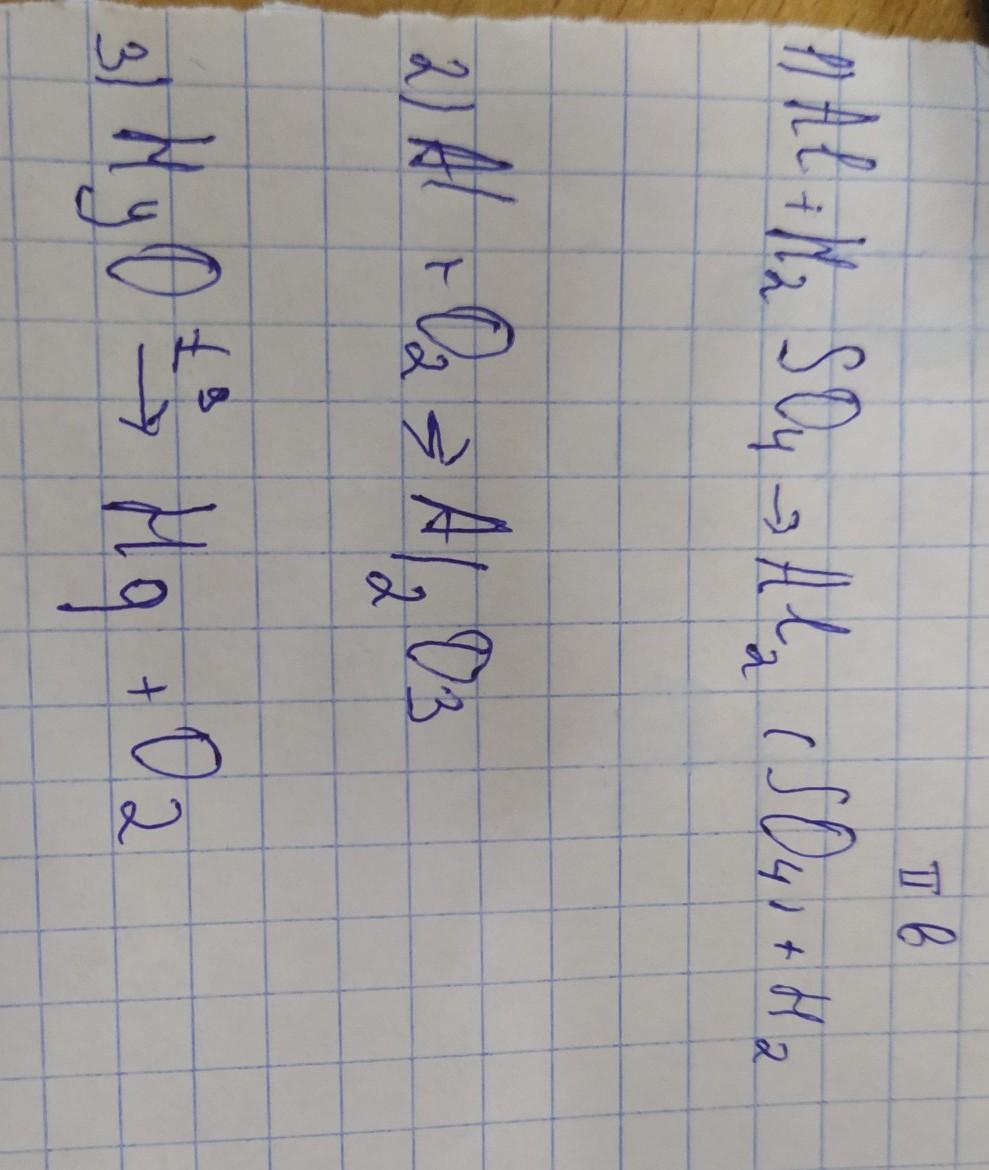 II в
1) Al + H2 SO4 → Al2 (SO4) + H2
2) Al + O2 → Al2 O3
3) HgO t° → Hg + O2